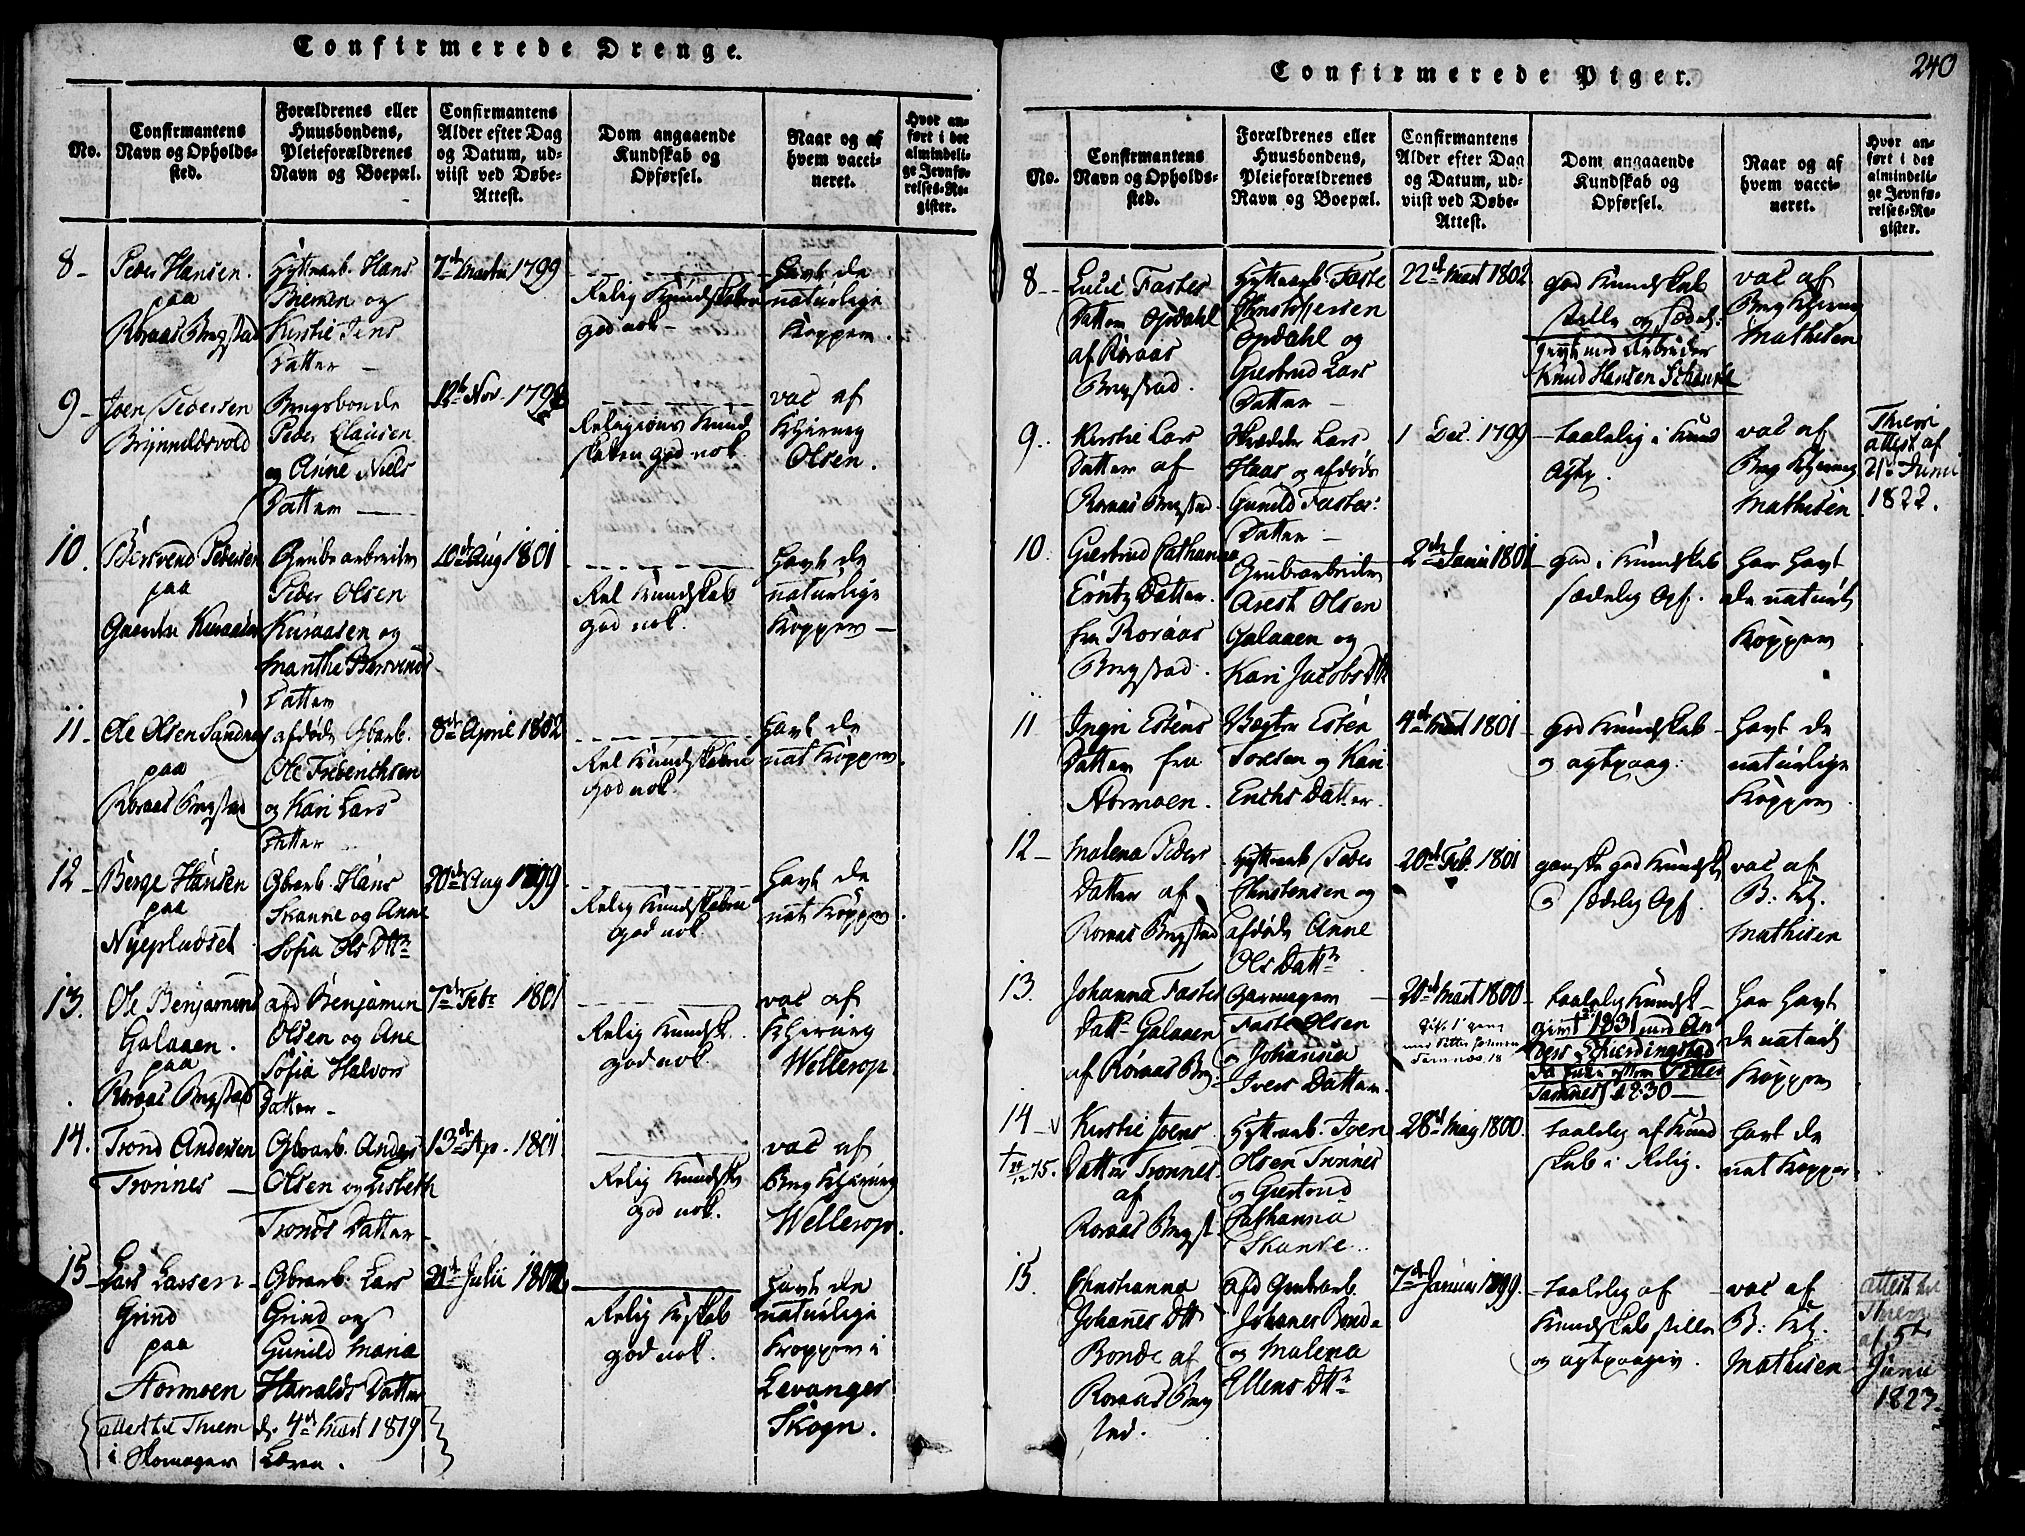 Confirmerede Drenge.
No.
Confirmantens
Navn og Opholds-
sted.
Forældrenes eller
Huusbondens,
Pleieforældrenes
Navn og Boepæl.
Confirmantens
Alder efter Dag
og Datum, ud-
viist ved Døbe-
Attest.
Dom angaaende
Kundskab og
Opførsel.
Naar og af
hvem vacci-
neret.
Hvor an-
ført i det
almindeli-
ge Jevnfø-
relses-Re-
gister.
8 -
Peder Hansen.
paa
Roraas Bergstad
Hyttearb. Hans
Bremen og
Kirstie Jens
Datter -
7de Martii 1799
Relig Kundskaben
god nok -
Havt de
naturlige
Kopper.
9 -
Joen Pedersen
Brynnildsvold
Bergsbonde
Peder Clausen
og Anne Niels
Datter -
12te Nov. 1798
Religions Kund
skaben god nok
vac af
Kjerneg
Olsen.
10.
Bersvend Pedersen
paa
Kuraasen
Grubearbeider
Peder Olsen
Kuraasen og
Marithe Bersvends
Datter
10de Aug 1801
Rel Kundskab
god nok.
Havt de
naturlige
Kopper -
11 -
Ole Olsen Sandnes
paa
Roraas Bergstad
afdøde Gbarb.
Ole Friderichsen
og Kari Lars
Datter
8de April 1802
Rel Kundskaben
god nok.
Havt de
nat Kopper.
12 -
Berge Hansen
paa
Nyepladset
Gbarb. Hans
Skanke og Anne
Sofia Ols Dtr
20de Aug 1799
Relig Kundskaben
god nok
Havt de
nat Kopper.
13.
Ole Benjamins
Galaaen.
paa
Roraas Bergstad
afd Benjamin
Olsen og Ane
Sofia Halvors
Datter -
7de Febr 1801
Relig Kundsk.
god nok.
vac af
Kjerneg
Wellerop.
14.
Trond Andersen
Tronnes -
Gbrarb. Anders
Olsen og Lisbeth
Tronds Datter -
13de Ap. 1801
Relig Kundsk
god nok.
vac af
Brg Kjerneg
Wellerop.
15 -
Lars Larsen -
Grind
paa
Stormoen
Gbrarb. Lars
Grind og
Gunild Maria
Haralds Datter
21de Julii 1802
Relig Kskab
god nok.
Havt de
naturlige
Kopper i
Levanger
Skogn.
attest til Thiem d. 4de Mart 1819
i Skomager Læren.
240
Confirmerede Piger.
No.
Confirmantens
Navn og Opholds-
sted.
Forældrenes eller
Huusbondens,
Pleieforældrenes
Navn og Boepæl.
Confirmantens
Alder efter Dag
og Datum, ud-
viist ved Døbe-
Attest.
Dom angaaende
Kundskab og
Opførsel.
Naar og af
hvem vacci-
neret.
Hvor an-
ført i det
almindeli-
ge Jevnfø-
relses-Re-
gister.
8 -
Lucie Fastes
Datter Opdahl
af Røraas
Bergstad.
Hyttearb. Faste
Christophersen
Opdahl og
Giertrud Lars
Datter -
22de Mart 1802
god Kundskab
stille og sædel:
Knud Hansen Schanke
vac af
Brg Kjerneg
Mathisen
9.
Kirstie Lars
Datter af
Roraas Bergstad.
Skrædder Lars
Haas og afdøde
Gunild Fastes:
Datter -
1 Dec. 1799
- taalelig i Kund
vac af
Brg Kjerneg
Mathisen
attest af
21de Junii
1822.
10.
Giertrud Cathanna
Datter.
fra Roraas
Bergstad.
Grubearbeider
Arest Olsen
Galaaen og
Kari Jacobs Dtr
2de Janii 1801
god i Kundskab
sædelig Opf.
har havt
de naturl
Kopper
11
Ingri Estens
Datter fra
Stormoen.
Vægter Esten
Toresen og Kari
Erichs Datter.
4de Mart 1801
god Kundskab
og agtpaag.
Havt de
naturlige
Kopper.
12 -
Malena Peders
Datter af
Roraas Bergstad
Hyttearb Peder
Christensen og
afdøde Anne
Ols Dattr
20de Feb. 1801
ganske god Kundsk
og sædelig Opf.
vac af
B. Kj.
Mathisen
13.
Johanna Fastes
Dattr Galaaen
af Røraas Brg
Garmager
Faste Olsen
og Johanna
Ivers Datter.
20de Mart 1800
taalelig Kundsk -
givt 1831 med An
Tamnes 1830 -
har havt
de naturl
Kopper
14 -
Kirstie Joens
Datter Tronnes
af
Roraas Bergst.
Hyttearb. Joen
Olsen Tronnes
og Giertrud
Cathanna
Skanke..
28de Maj 1800.
taalelig af Kund
skab i Relig.
Havt de
nat Kopper.
15.
Christianna
Johanes Dtr
Bonde af
Roraas Berg
sted.
afd Grubearb.
Johanes Bonde
og Malena
Ellens Dtr
7de Januar 1799.
- taalelig af
Kundskab stille
og agtpaagiv.
- vac af
B. Kj.
Mathisen
attest til
af 5te
Junii
1823.